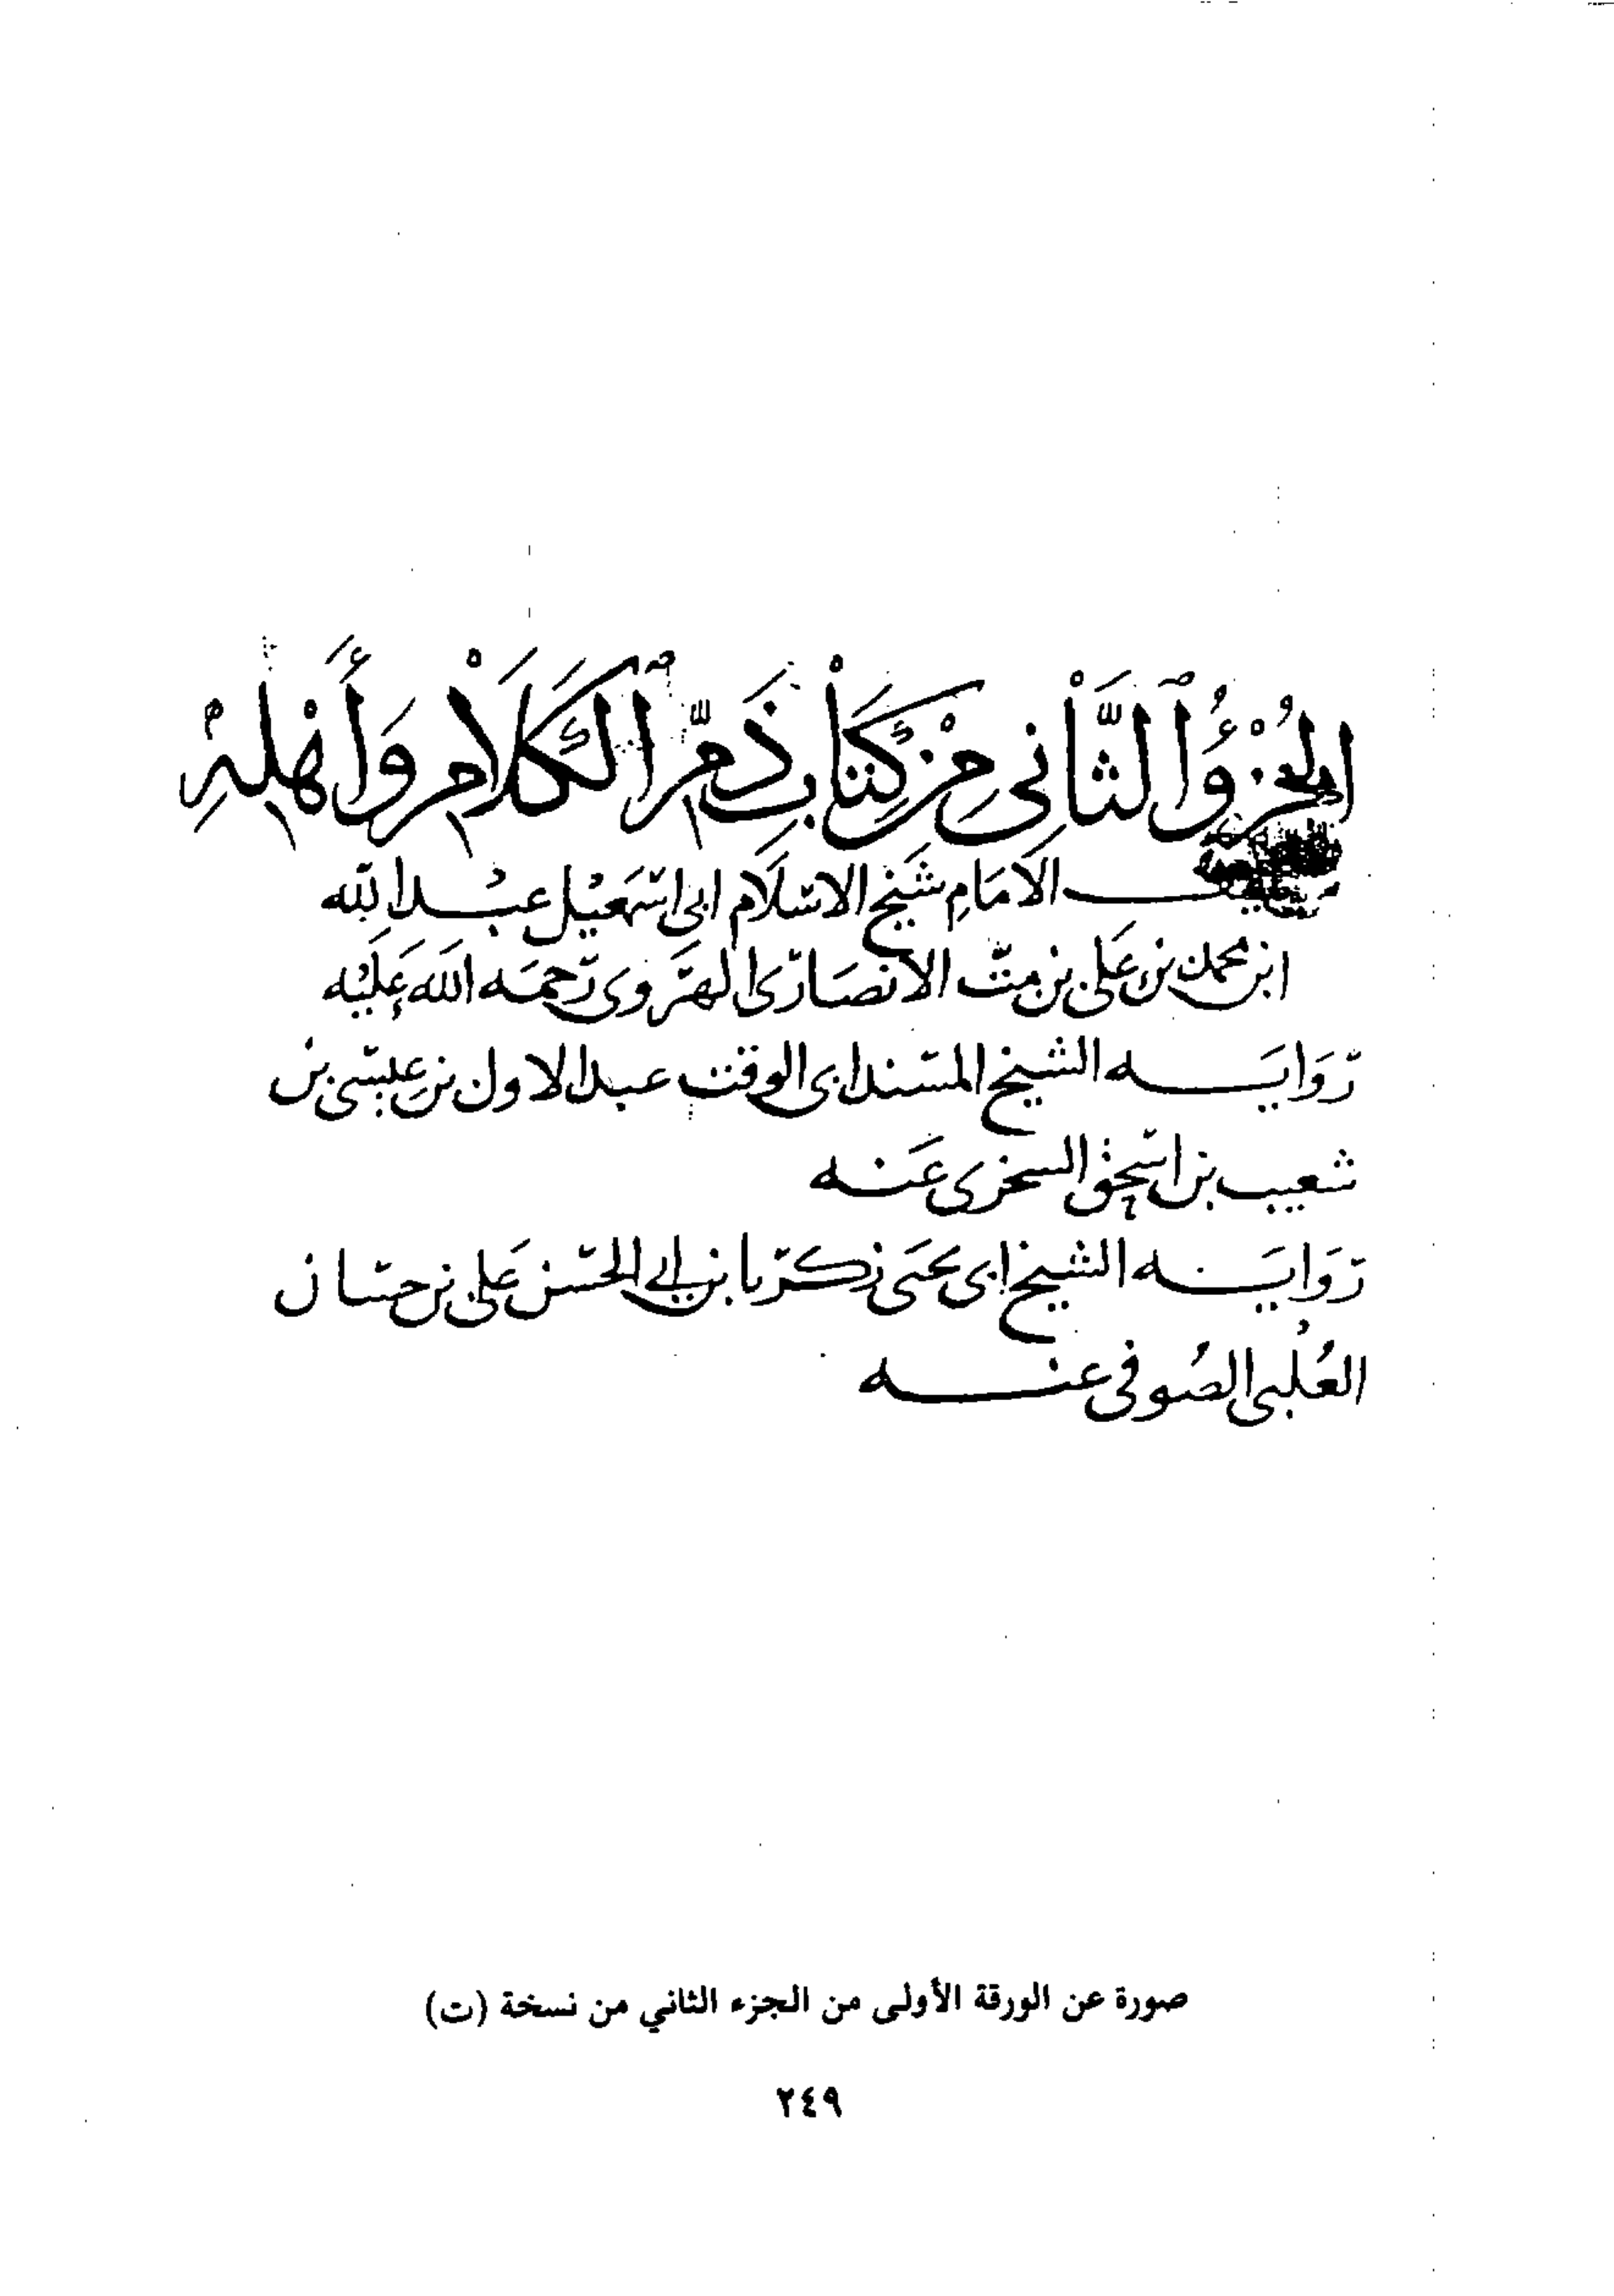 الجُزْؤُ الثَّانِي مِنْ كِتَابِ ذَمِّ الكَلَامِ وَأَهْلِهِ
الامَامِ شَيْخِ الاسْلَام ابى اسمعيل عبْد الله
ابن محمد بن عَلى بن مت الانصَارىّ الهَروى رَحمَه الله عَلَيْه
رِوَايَـــه الشيخ المسند ابى الوقت عبد الاول بن عيسَى بن
شعيب بن اسحق السجزى عَنه
رِوَايَـــه الشيخ ابى يحيَى زكريا بن ابي الحسن عَلى بن حسان
العُلبى الصُوفى عنـــه
صورة عن الورقة الأولى من الجزء الثاني من نسخة (ت)
٢٤٩